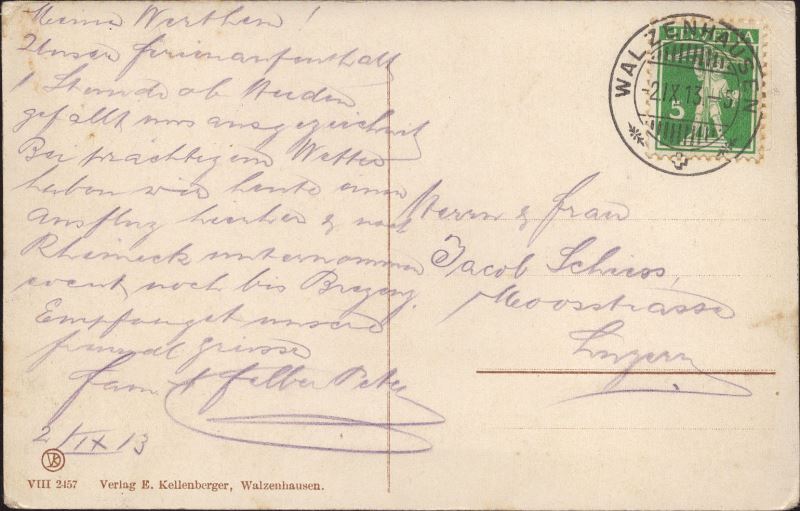 Meine Werthen!
Unser ferienaufenthalt
1 Stunde ob Heiden
gefällt uns ausgezeichnet
Bei prächtigem Wetter
haben wir heute einen
Ausflug hierher & nach
Rheineck unternommen
event. noch bis Bregenz.
Empfanget unsere
freundl grüsse
fam A felber Peter
2/IX 13
VIII 2457 Verlag E. Kellenberger, Walzenhausen.
WALZENHAUSEN
-2.IX.13-
HELVETIA
5
Herrn & frau
Jacob Schiess,
Moosstrasse
Luzern